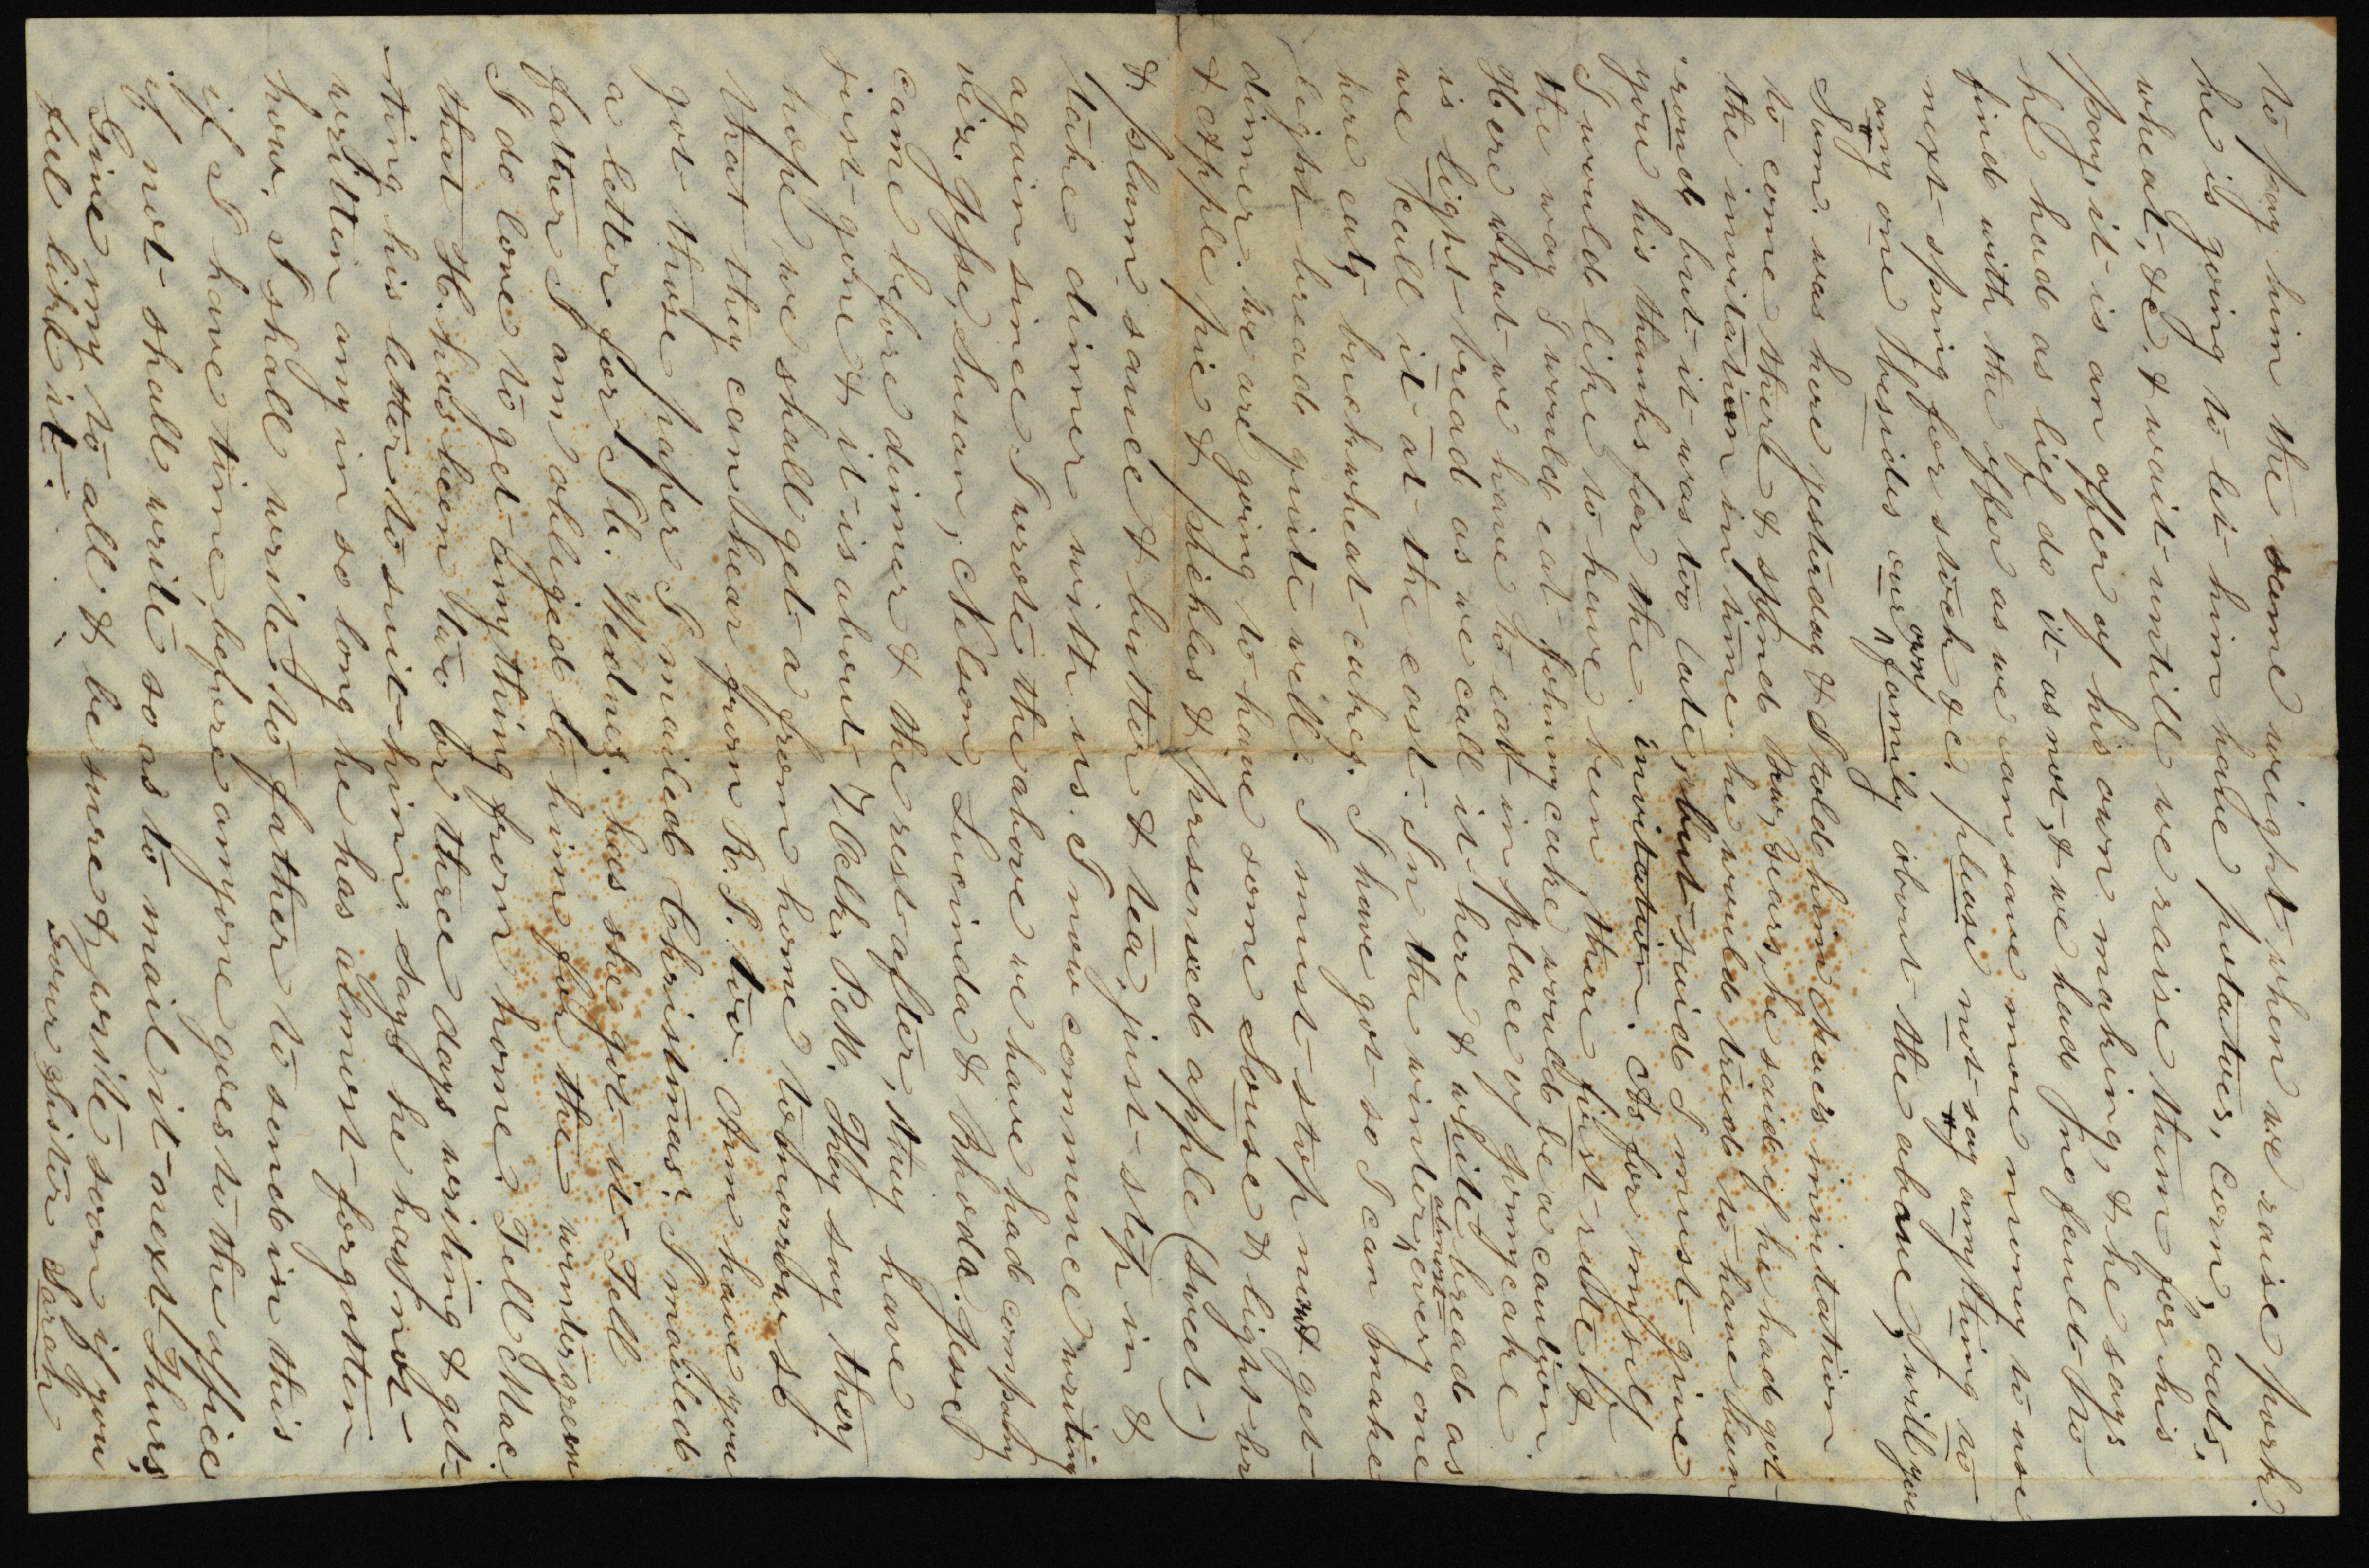 to pay him the same weight when we raise pork.
he is going to let him have potatoes, corn, oats,
wheat, &c. & wait untill we raise them for his
pay, it is an offer of his own making, & he says
he had as lief do it as not, & we had no fault to
find with the offer as we can save more money to use
next spring for stock &c. please not say anything to
any one besides our own family about the above, will you
Sam. was here yesterday & I told him Chaes invitation
to come there & spend New Years, he said if he had got
the invitation in time he would tried to have them
round but it was too late, but said I must give
you his thanks for the invitation. As for myself
I would like to have been there first rate &
the way I would eat Johnny cake would be a caution.
Here what we have to eat in place of Jonnycake
is light bread as we call it here & white bread as
we call it at the east. In the winter, almost every one
here eats buckwheat cakes. I have got so I can make
light bread quite well. I must stop now & get
dinner. We are going to have some Souse & light br
& apple pie & pickles & preserved apple (sweet)
& plum sauce & butter & tea, just step in &
take dinner with us. I now commence writing
again since I wrote the above we have had company
viz. Jesse, Susan, Nelson, Lucinda & Rhoda. Jesse
came before dinner & the rest after, they have
just gone & it is about 7 Oclk. P.M. They say they
hope we shall get a from home tomorrow so
that they can hear from R.I. too. Am have you
got those paper I mailed Christmas? I mailed
a letter for Sb. Wednes. has she got it Tell
father I am obliged to him for the wintergreen
I do love to get anything from home. Tell Mac.
that H. has been two or three days writing & get-
-ting his letter to suit him. says he has not
written any in so long he has almost forgotten
how. I shall write to father to send in this
if I have time, before anyone goes to the office
if not shall write so as to mail it next Thurs,
Give my to all & be sure & write soon if you
feel like it.
Your Sister Sarah